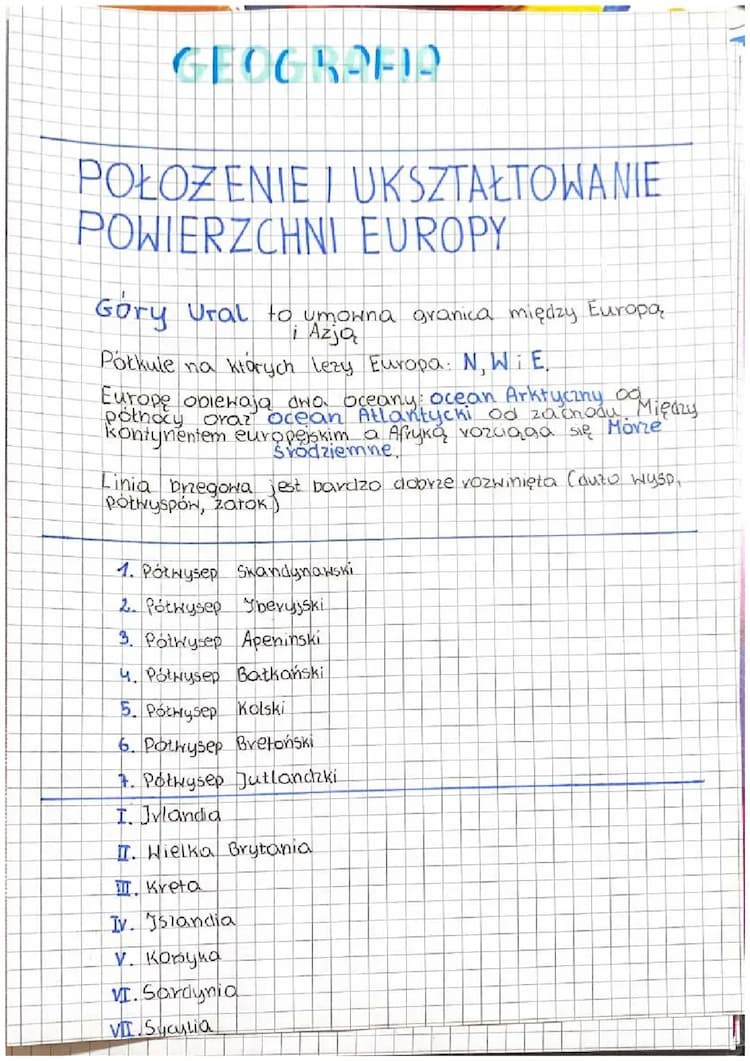 GEOGRAFIA
POŁOŻENIE I UKSZTAŁTOWANIE
POWIERZCHNI EUROPY
Góry Ural to umowna granica między Europą
i Azją
Półkule na których leży Europa: N, W i E.
Europę oblewają dwa oceany: ocean Arktyczny od
północy oraz ocean Atlantycki od zachodu. Między
kontynentem europejskim a Afryką rozciąga się Morze
Śródziemne.
Linia brzegowa jest bardzo dobrze rozwinięta (dużo wysp,
półwyspów, zatok)
1. Półwysep Skandynawski
2. Półwysep Iberyjski
3. Półwysep Apeniński
4. Półwysep Bałkański
5. Półwysep Kolski
6. Półwysep Bretoński
7. Półwysep Jutlandzki
I. Irlandia
II. Wielka Brytania
III. Kreta
IV. Islandia
V. Korsyka
VI. Sardynia
VII. Sycylia